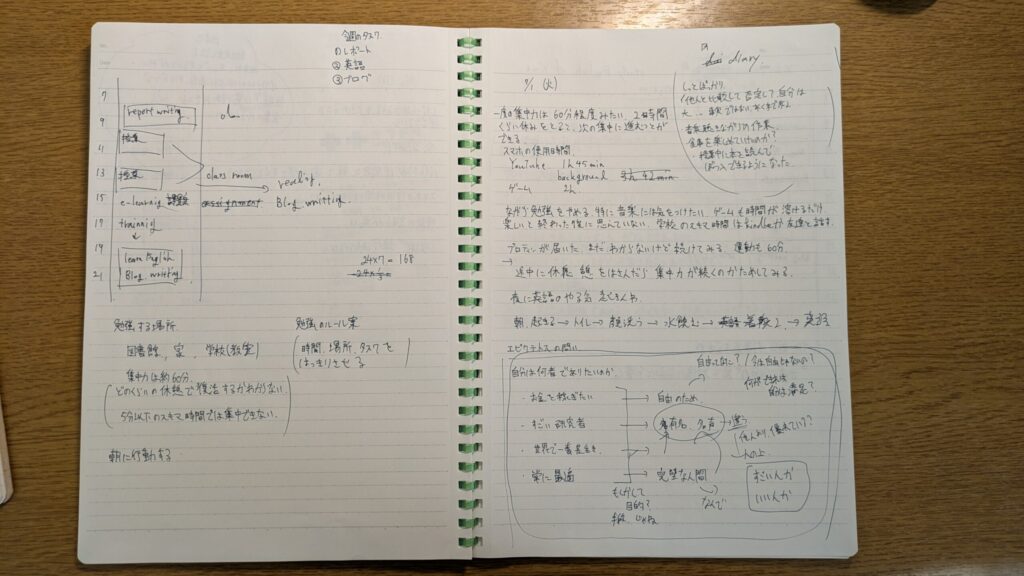 今週のタスク
①レポート
②英語
③ブログ
7
9
report writing
授業
11
13
授業
class room
reading,
15
e-learnig 課題
assignment
Blog writting
17
thainnig
19
learn English
Blog writting
21
24×7=168
勉強する場所
図書館、家、学校(教室)
集中力は約60分.
どのくらいの休憩で復活するかわからない.
5分以下のスキマ時間では集中できない.
朝に行動する
勉強のルール案
時間、場所、タスクを
はっきりさせる
diary.
7/1 (火)
一度の集中力は60分程度みたい.
くらい休みをとると、次の集中に
できる.
スマホの使用時間
YouTube 1h 45min
background 42min
ゲーム 2h
しっとばっかり
他人と比較して否定して自分は
音楽聴きながらの作業.
食事を楽しめていけるのか?
授業中に本を読んで
ながら勉強をやめる. 特に音楽には気をつけたい. ゲームも時間が溶けるだけ
楽しいと終わった後に思えていない. 学校のスキマ時間はkindleか友達と話す.
プロテインが届いた. まだわからないけど続けてみる. 運動も60分.
→
途中に休憩をはさんだら集中力が続くのかためしてみる.
夜に英語のやる気
朝. 起きる→トイレ→顔洗う→水飲む→
エピクテトスの問い
自分は何者でありたいのか.
自由って何?
今は自由じゃないの?
何があれば
自分は満足?
・お金を稼ぎたい
→ 自由のため.
・すごい研究者
→ 有名、名声 → 違う
他人より優れていう?
人の上.
・世界で一番
・常に最適
→ 完璧な人間
なんで
もしかして
目的?
手段じゃね
すごい人か
いい人か